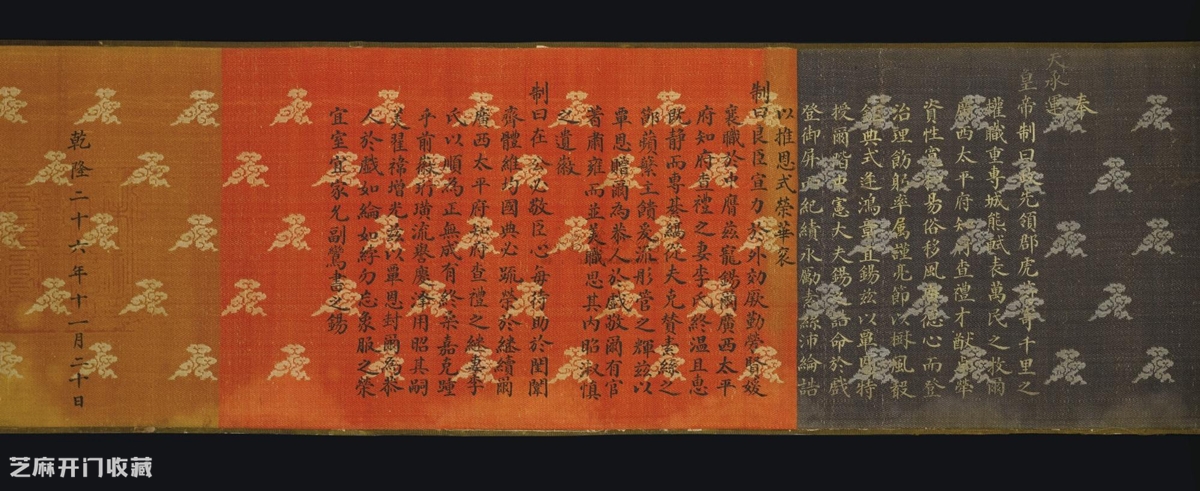 奉
天承運
皇帝制曰
領郡虎
千里之
權職重專城熊軾表萬民之牧爾
廣西太平府知府查禮才猷
資性
易俗移風
心而登
治理飭躬率屬謹亮節以
風
典式逢鴻章宜錫茲以覃恩特
授爾
憲大夫錫之誥命於戲
登御屏
紀績永勸素絲沛綸誥
以推恩式榮華袞
制曰良臣宣力於外効厥勤勞賢媛
襄職於中膺茲寵錫爾廣西太平
府知府查禮之妻李氏終溫且惠
既靜而專綦縞從夫克贊素絲之
節蘋蘩主饋爰流彤管之輝茲以
覃恩贈爾為恭人於戲敬爾有官
著肅雍而並美職思其內昭淑慎
之遺徽
制曰在公必敬臣心每待助於閨閫
齊體維均國典必疏榮於繼續爾
廣西太平府知府查禮之繼妻李
氏以順為正無成有終柔嘉克踵
乎前徽珩璜流譽慶澤用昭其嗣
美翟褘增光茲以覃恩封爾為恭
人於戲如綸如綍勿忘象服之榮
宜室宜家允副鸞書之錫
乾隆二十六年十一月二十日
芝麻开门收藏